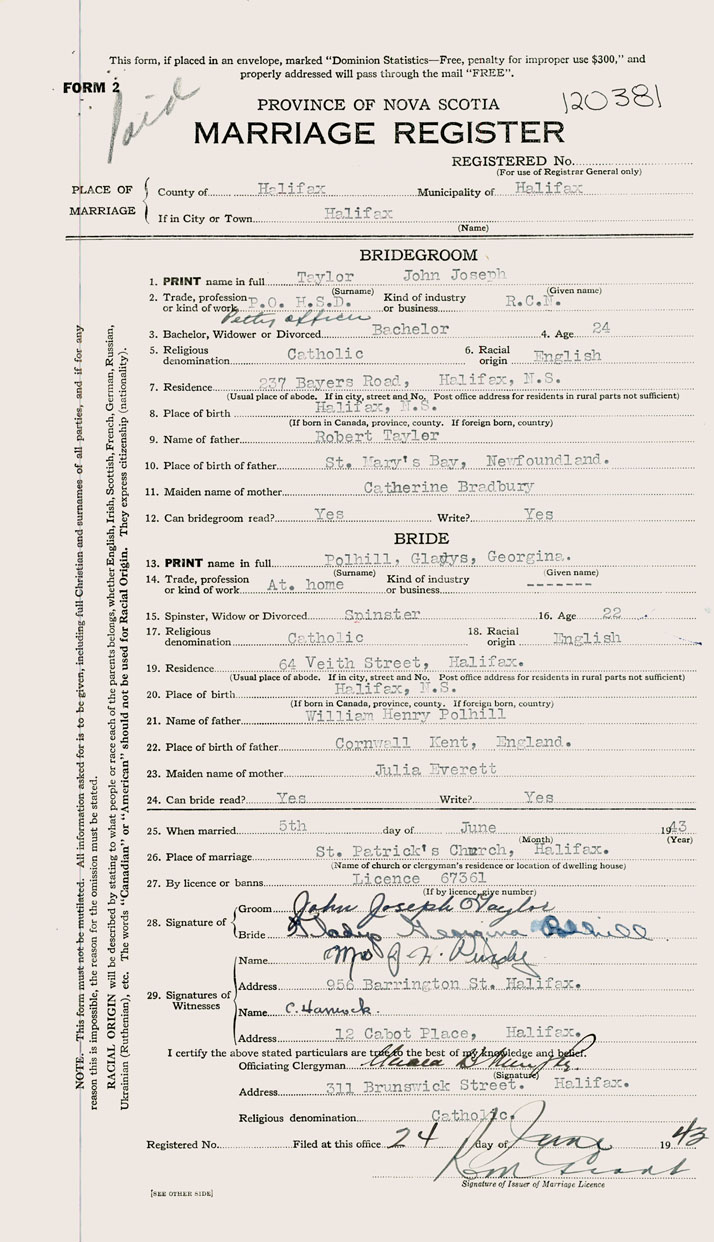 This form, if placed in an envelope, marked "Dominion Statistics—Free, penalty for improper use $300," and
properly addressed will pass through the mail "FREE".
FORM 2
Paid
PROVINCE OF NOVA SCOTIA
120381
MARRIAGE REGISTER
REGISTERED No.
(For use of Registrar General only)
PLACE OF MARRIAGE
County of Halifax Municipality of Halifax
If in City or Town Halifax
(Name)
BRIDEGROOM
1. PRINT name in full Taylor John Joseph
(Surname) (Given name)
2. Trade, profession or kind of work P.O. H.S.D. Kind of industry or business R.C.N.
Petty officer
3. Bachelor, Widower or Divorced Bachelor 4. Age 24
5. Religious denomination Catholic 6. Racial origin English
7. Residence 237 Bayers Road, Halifax, N.S.
(Usual place of abode. If in city, street and No. Post office address for residents in rural parts not sufficient)
8. Place of birth Halifax, N.S.
(If born in Canada, province, county. If foreign born, country)
9. Name of father Robert Taylor
10. Place of birth of father St. Mary's Bay, Newfoundland.
11. Maiden name of mother Catherine Bradbury
12. Can bridegroom read? Yes Write? Yes
BRIDE
13. PRINT name in full Polhill, Gladys, Georgina.
(Surname) (Given name)
14. Trade, profession or kind of work At. home Kind of industry or business -------
15. Spinster, Widow or Divorced Spinster 16. Age 22
17. Religious denomination Catholic 18. Racial origin English
19. Residence 64 Veith Street, Halifax.
(Usual place of abode. If in city, street and No. Post office address for residents in rural parts not sufficient)
20. Place of birth Halifax, N.S.
(If born in Canada, province, county. If foreign born, country)
21. Name of father William Henry Polhill
22. Place of birth of father Cornwall Kent, England.
23. Maiden name of mother Julia Everett
24. Can bride read? Yes Write? Yes
25. When married 5th day of June 1943
(Month) (Year)
26. Place of marriage St. Patrick's Church, Halifax.
(Name of church or clergyman's residence or location of dwelling house)
27. By licence or banns Licence 67361
(If by licence, give number)
28. Signature of
Groom John Joseph Taylor
Bride Gladys Georgina Polhill
29. Signatures of Witnesses
Name Mrs J. H. Purdy
Address 956 Barrington St. Halifax.
Name C. Hancock.
Address 12 Cabot Place, Halifax.
I certify the above stated particulars are true to the best of my knowledge and belief.
Officiating Clergyman
(Signature)
Address 311 Brunswick Street. Halifax.
Religious denomination Catholic.
Registered No. Filed at this office 24 day of June 1943
Signature of Issuer of Marriage Licence
[SEE OTHER SIDE]
NOTE.—This form must not be mutilated. All information asked for is to be given, including full Christian and surnames of all parties, and if for any
reason this is impossible, the reason for the omission must be stated.
RACIAL ORIGIN will be described by stating to what people or race each of the parents belongs, whether English, Irish, Scottish, French, German, Russian,
Ukrainian (Ruthenian), etc. The words "Canadian" or "American" should not be used for Racial Origin. They express citizenship (nationality).